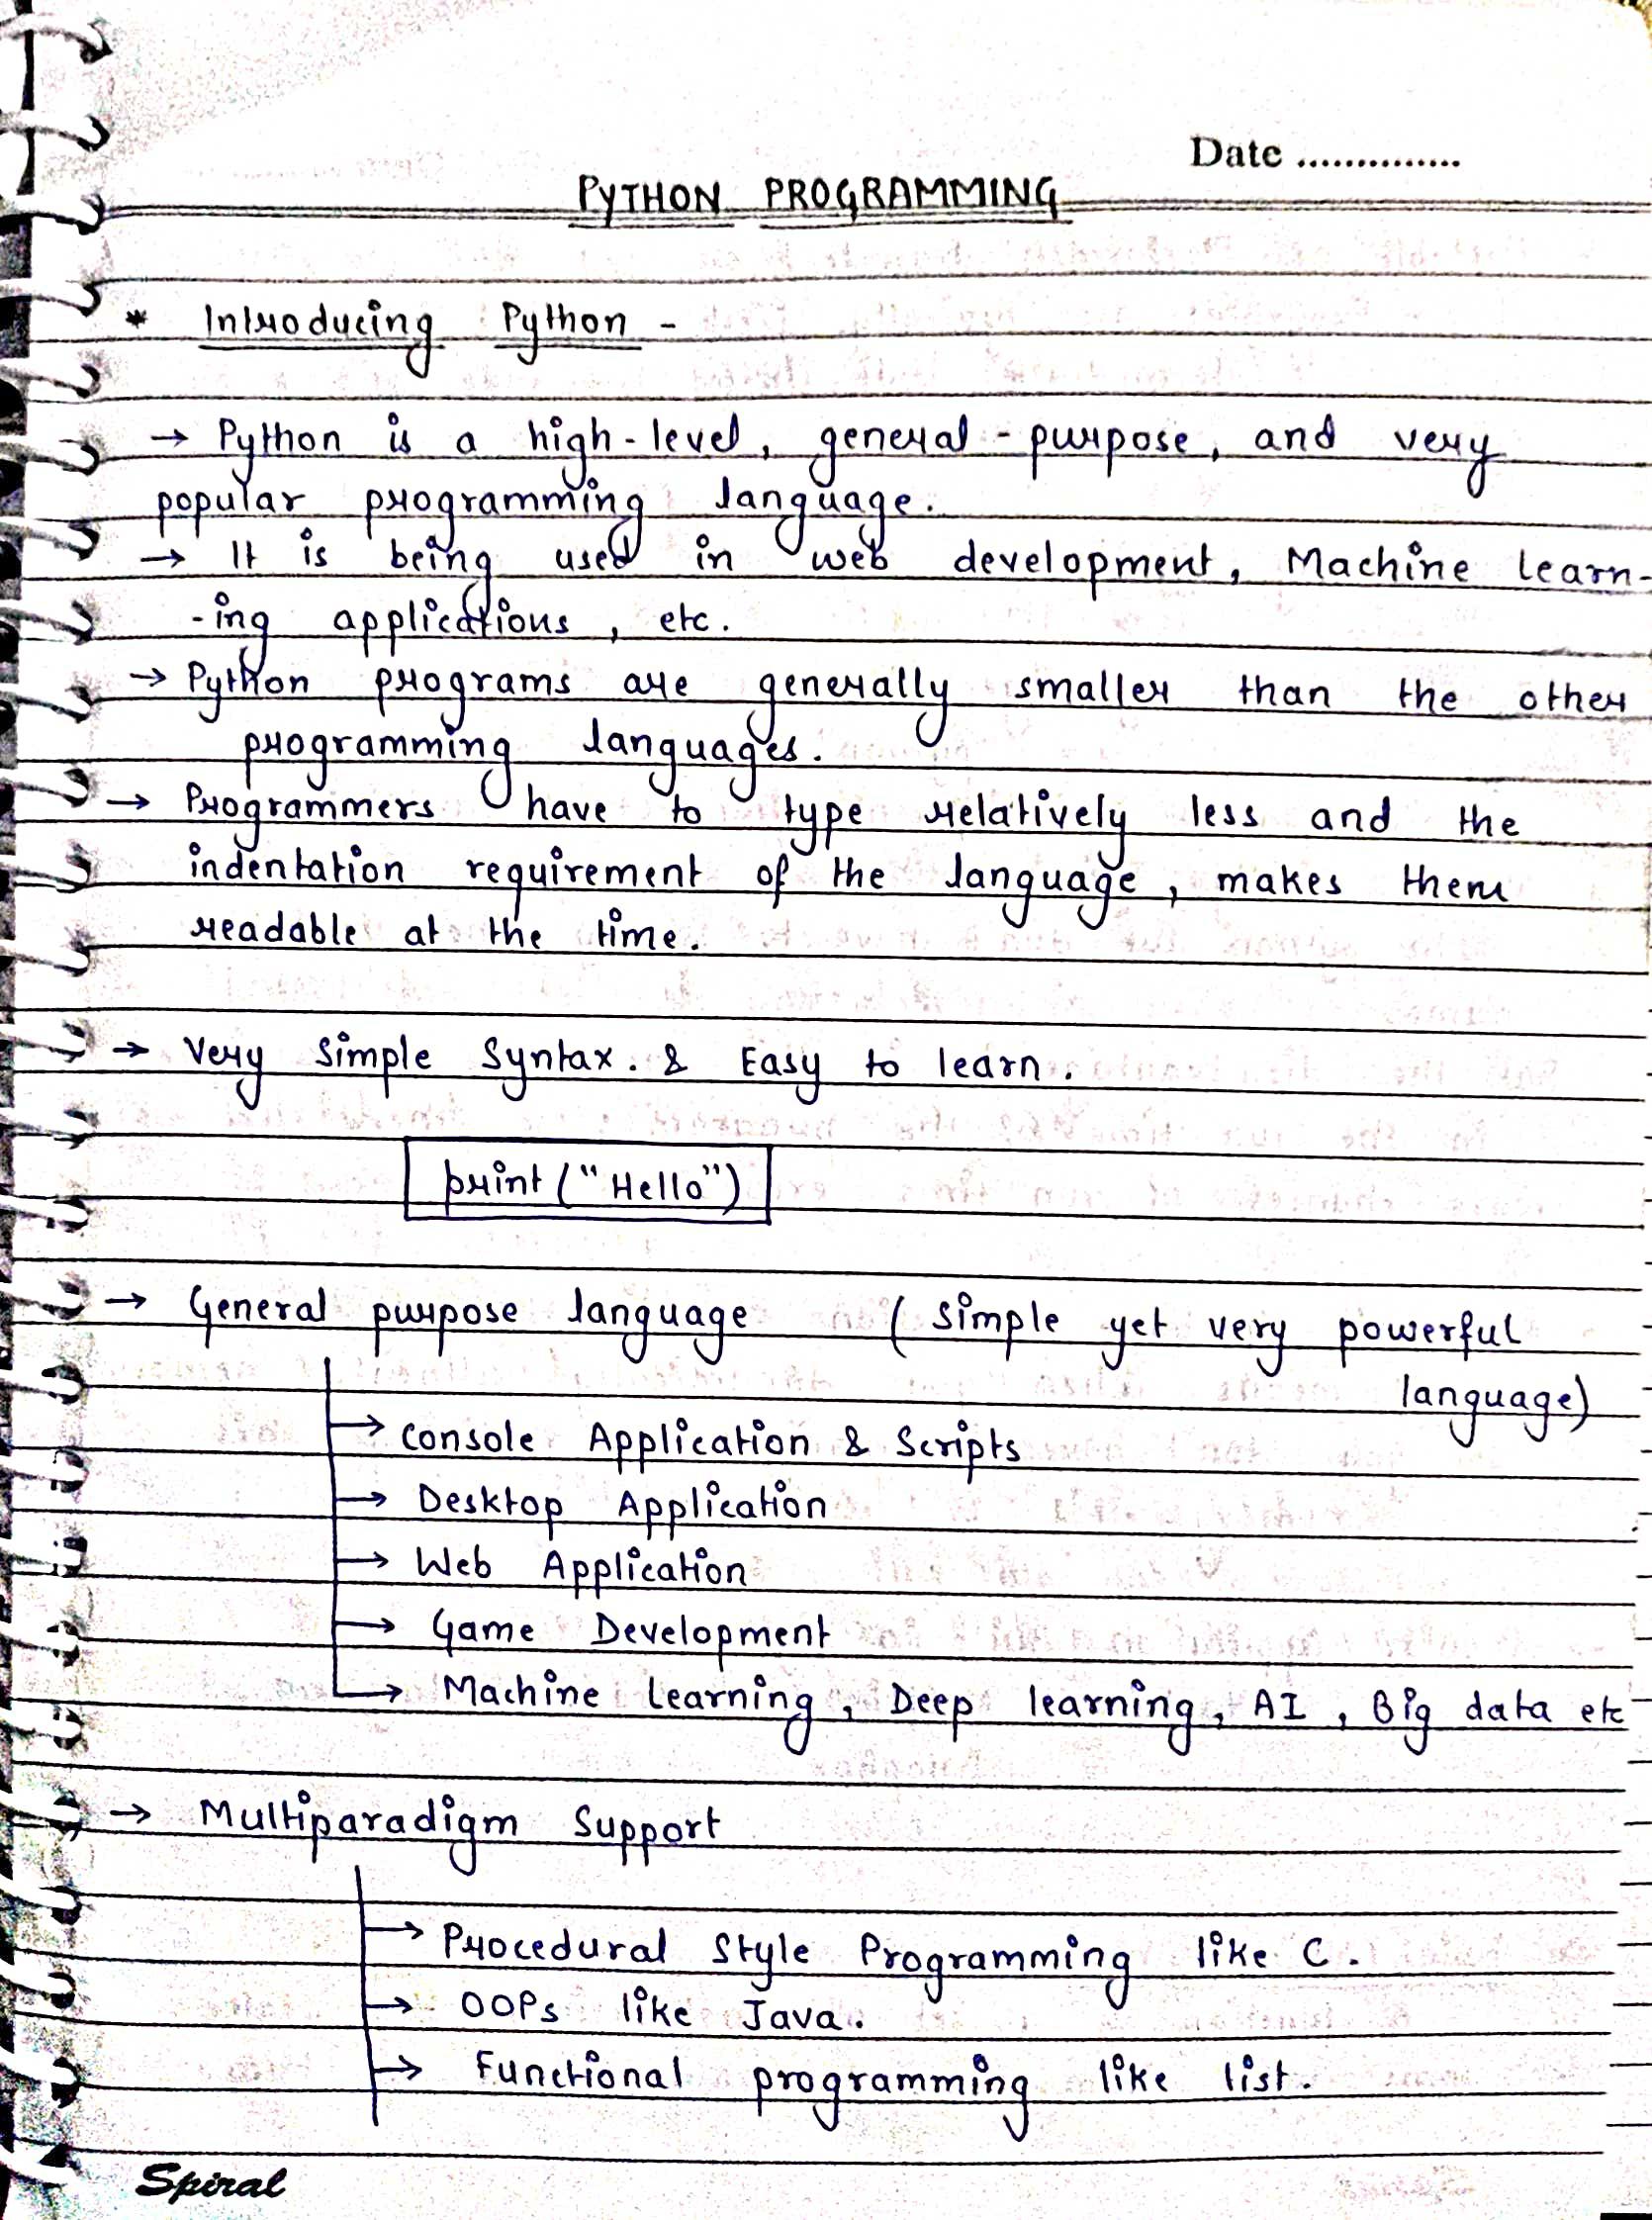 Date ..............
PYTHON PROGRAMMING
* Introducing Python -
→ Python is a high-level, general-purpose, and very
popular programming language.
→ It is being used in web development, Machine learn-
-ing applications, etc.
→ Python programs are generally smaller than the other
programming languages.
→ Programmers have to type relatively less and the
indentation requirement of the language, makes them
readable at the time.
→ Very Simple Syntax. & Easy to learn.
print ("Hello")
→ General purpose language (Simple yet very powerful
language)
→ Console Application & Scripts
→ Desktop Application
→ Web Application
→ Game Development
→ Machine Learning, Deep learning, AI, Big data etc
→ Multiparadigm Support
→ Procedural Style Programming like C.
→ OOPs like Java.
→ Functional programming like list.
Spiral